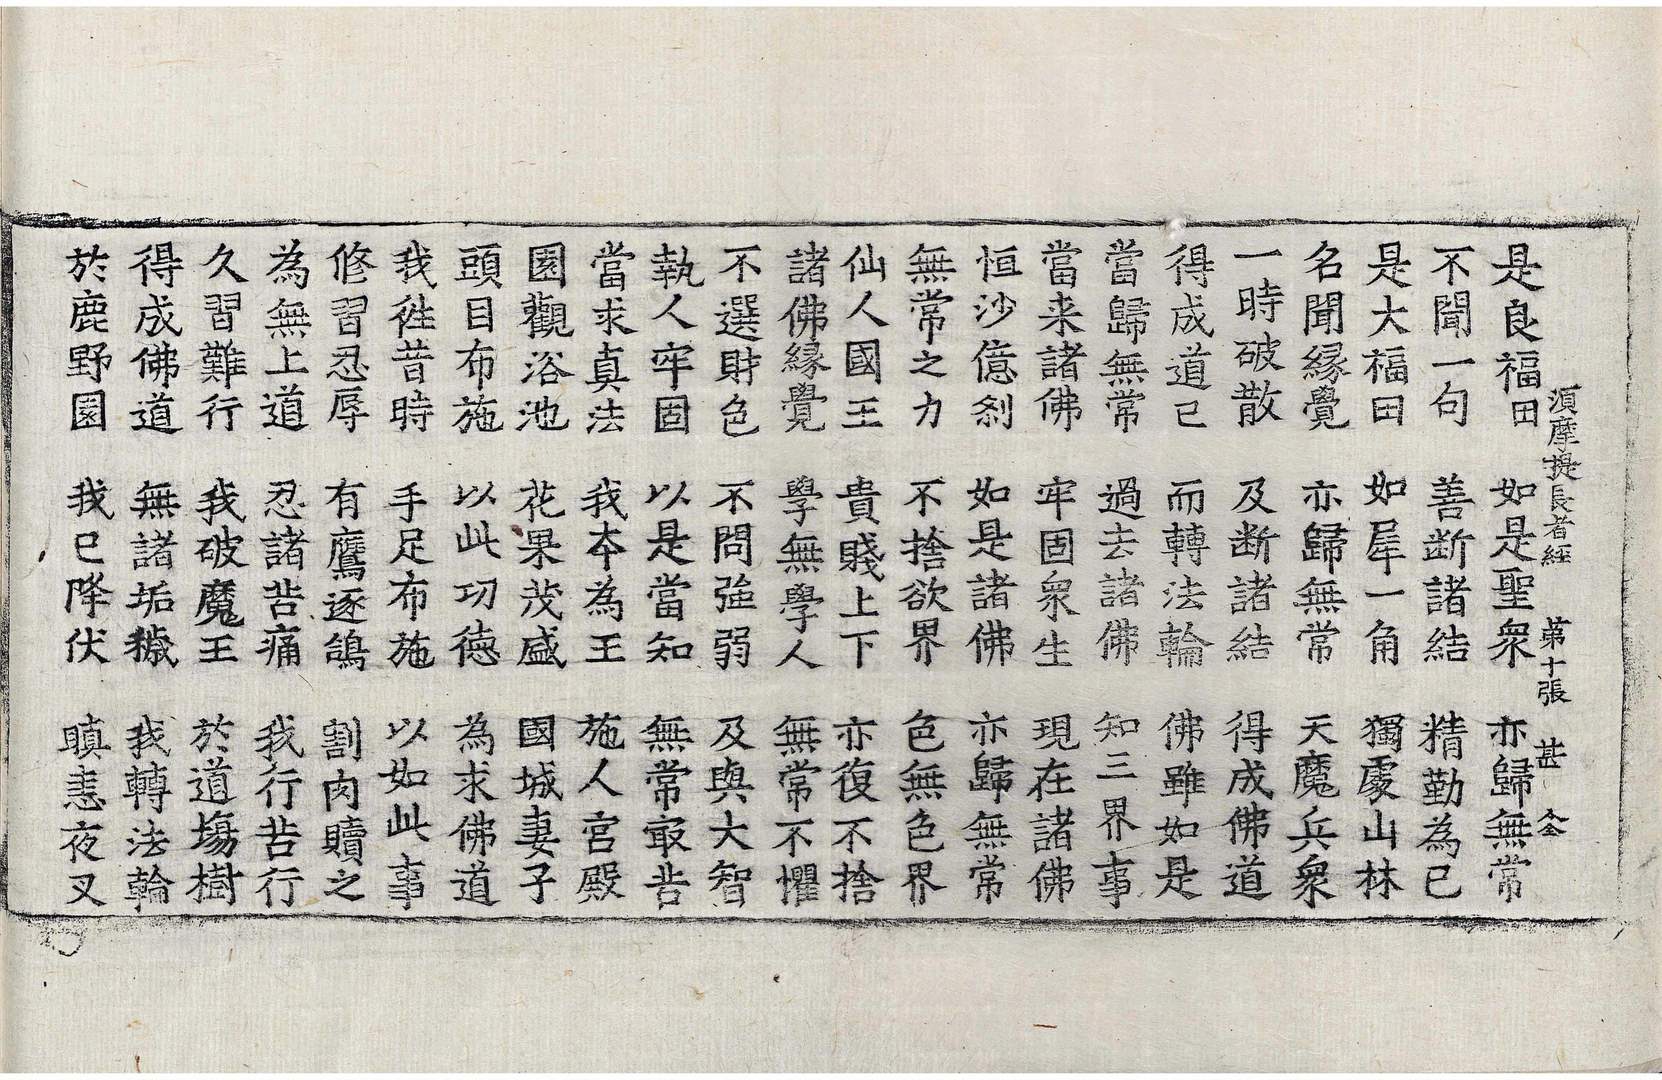 須摩提長者經　第十張　甚　仝
是良福田　如是聖衆　亦歸無常
不聞一句　善断諸結　精勤為已
是大福田　如犀一角　獨處山林
名聞縁覺　亦歸無常　天魔兵衆
一時破散　及断諸結　得成佛道
得成道已　而轉法輪　佛雖如是
當歸無常　過去諸佛　知三界事
當来諸佛　牢固衆生　現在諸佛
恒沙億刹　如是諸佛　亦歸無常
無常之力　不捨欲界　色無色界
仙人國王　貴賤上下　亦復不捨
諸佛縁覺　學無學人　無常不懼
不選財色　不問強弱　及與大智
執人牢固　以是當知　無常㝡苦
當求真法　我夲為王　施人宮殿
園觀浴池　花果茂盛　國城妻子
頭目布施　以此功德　為求佛道
我徃昔時　手足布施　以如此事
修習忍辱　有鷹逐鴿　割肉贖之
為無上道　忍諸苦痛　我行苦行
久習難行　我破魔王　於道塲樹
得成佛道　無諸垢穢　我轉法輪
於鹿野園　我已降伏　瞋恚夜叉